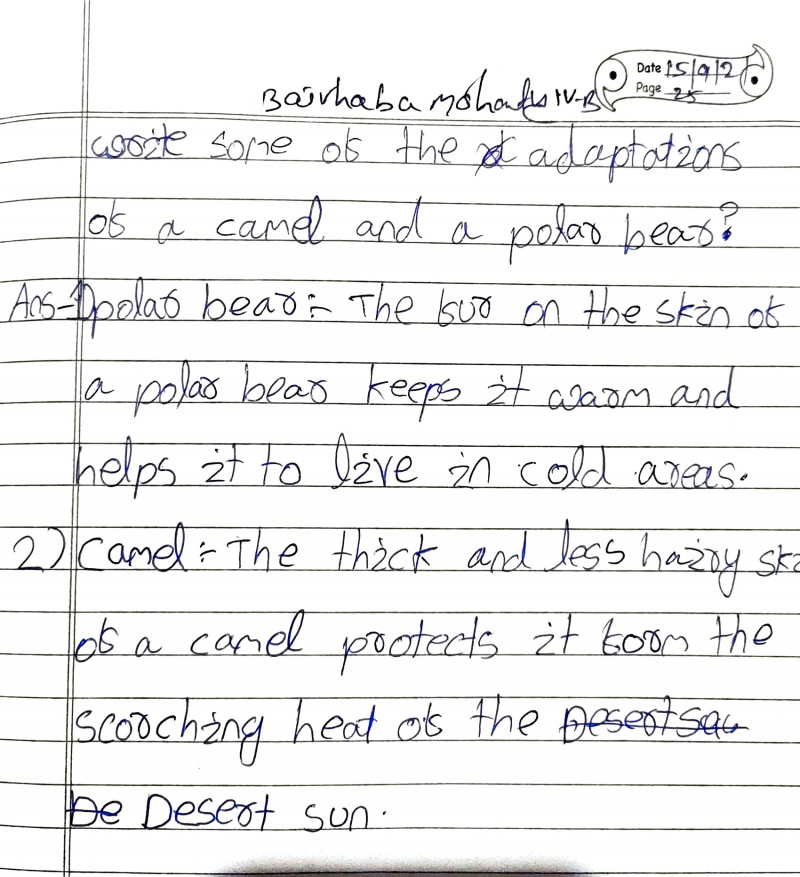 Date 15/9/2
Page 25
IV-B
write some of the adaptations
of a camel and a polar bear?
Ans-1) polar bear:- The fur on the skin of
a polar bear keeps it warm and
helps it to live in cold areas.
2) Camel:- The thick and less hairy
of a camel protects it from the
scorching heat of the Desert
De Desert sun.